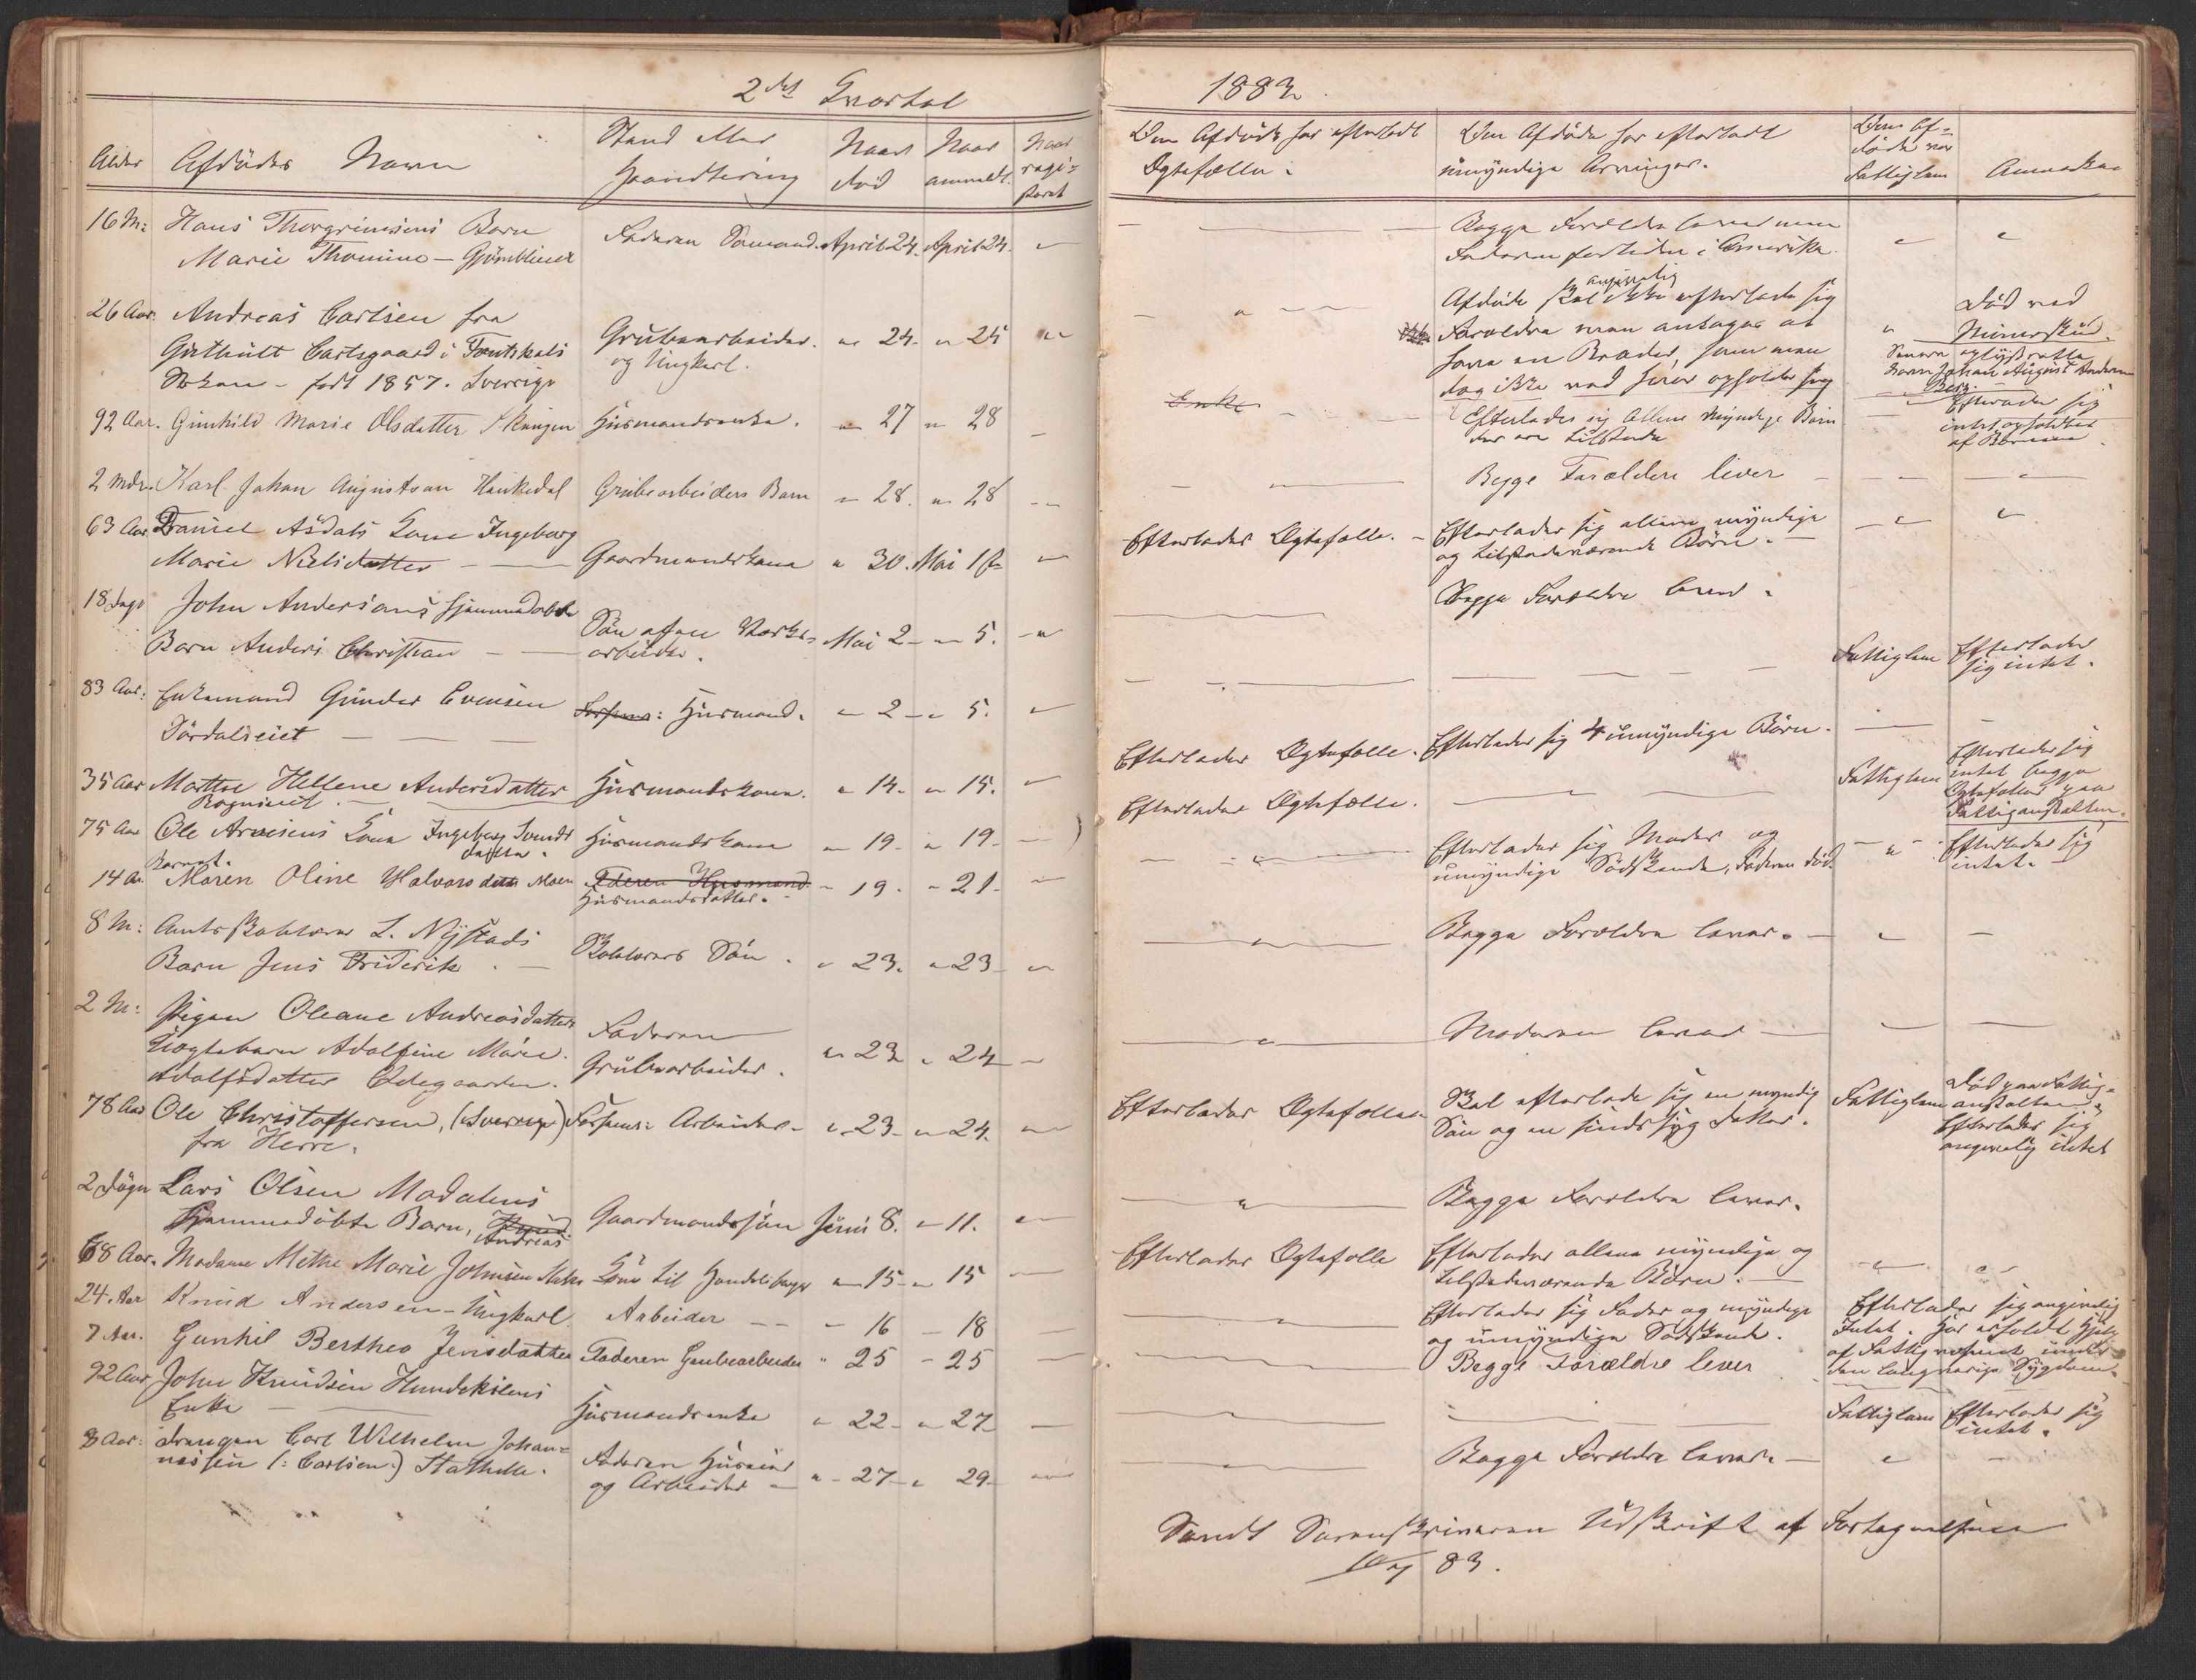 2det Qvartal
Alder
Afdødes Navn
Stand eller
Haandtering
Naar
død
Naar
anmeldt.
Naar
regi-
streret
16 M: Hans Thorgrimsens Barn
Marie Thomine — Faderen Sømand. April 24. April 24.
26 Aar. Andreas Carlsen fra
Carlsgaard i
født 1857. Sverrige
Grubearbeider.
og Ungkarl.
" 24. " 25
92 Aar. Gunhild Marie Olsdatter Skaugen Husmandsenke. " 27 " 28
2 Mdr. Karl Johan Augustsen Grubearbeiders Barn " 28. " 28
63 Aar Daniel Åsdals Kone Ingeborg
Marie Nielsdatter — Gaardmandskone " 30. Mai 1ste
18 Dage John Andersens hjemmedøbte
Barn Anders Christian
Søn af en
arbeider.
Mai 2 " 5.
83 Aar: Enkemand Gunder Evensen
Dørdalseiet
Husmand. " 2 " 5.
35 Aar Marthe Hellene Andersdatter Husmandskone. " 14. " 15.
75 Aar Ole Arnesens Kone Ingeborg Svends
datter.
Husmandskone " 19. " 19.
14 A. Maren Oline Halvorsdatter Moen Faderen Husmand " 19. " 21.
Husmandsdatter.
8 M: L. Nystads
Barn Jens Friderik
Søn. " 23. " 23
2 M: Pigen Oleane Andreasdatters
uægtebarn Adolfine Marie
Adolfsdatter Ødegaarden.
Faderen
Grubearbeider.
" 23 " 24
78 Aar Ole Christoffersen, (Sverrige)
fra Herre.
Arbeider " 23 " 24.
2 Døgn Lars Olsen Modalens
hjemmedøbte Barn, Knud
Andreas
Gaardmandssøn Juni 8. " 11.
68 Aar. Madame Methe Marie Johnsen Kone til " 15 " 15
24. Aar Knud Andersen – Ungkarl Arbeider — " 16 – 18
7 Aar. Gunhil Berthea Jensdatter Faderen Grubearbeider " 25 – 25
92 Aar John Knudsen Hundekilens
Enke
Husmandsenke " 22 " 27
8 Aar: Drengen Carl Wilhelm Johan=
nessen (: Carlsen:) Stathelle.
Faderen
og Arbeider
" 27 " 29
1883
Den Afdøde har efterladt
Ægtefælle.
Den Afdøde har efterladt
umyndige Arvinger.
Den Af=
døde var
Fattiglem
Anmærkn.
Begge Forældre lever men
Faderen for tiden i Amerika
Afdøde skal ikke efterlade sig
angivelig
Forældre men antages at
have en Broder, som man
dog ikke ved hvor opholder sig
Død ved
Mineskud.
Enke
Efterlader sig Allene myndige Børn
der ere tilstede
Efterlader sig
intet
af Børnene.
Begge Forældere liver
Efterlader Ægtefælle. Efterlader sig allene myndige
og tilstedeværende Børn.
Begge Forældre lever.
Fattiglem Efterlader
sig intet.
Efterlader Ægtefælle. Efterlader sig 4 umyndige Børn.
Efterlader Ægtefælle. Fattiglem Efterlader sig
intet begge
Ægtefæller paa
Fattiganstalten.
Efterlader sig Moder og
umyndige Sødskende, Faderen død.
Efterlader sig
intet.
Begge Forældre lever.
Moderen lever
Efterlader Ægtefælle. Skal efterlade sig en myndig
Søn og en sindssyg Datter.
Fattiglem Død paa Fattig=
anstalten,
Efterlader sig
angivelig intet
Begge Forældre lever.
Efterlader Ægtefælle Efterlader allene myndige og
tilstedeværende Børn.
Efterlader sig Fader og myndige
og umyndige Sødskende.
Efterlader sig angivelig
Intet. Har erholdt Hjelp
af Fattigvæsenet under
den langvarige Sygdom.
Begge Forældre lever
Fattiglem Efterlader sig
intet.
Begge Forældre lever.
Sendt Sorenskriveren Udskrift af Fortegnelsen
83.